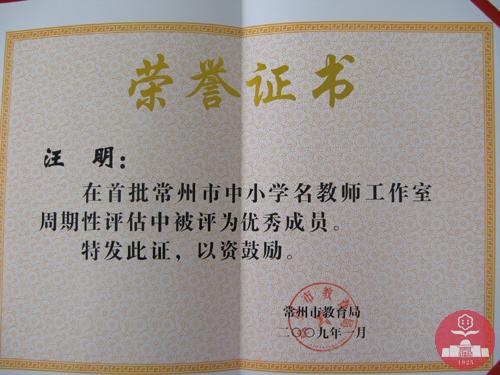 荣誉证书
汪 明：
在首批常州市中小学名教师工作室
周期性评估中被评为优秀成员。
特发此证，以资鼓励。
常州市教育局
二〇〇九年一月
1925